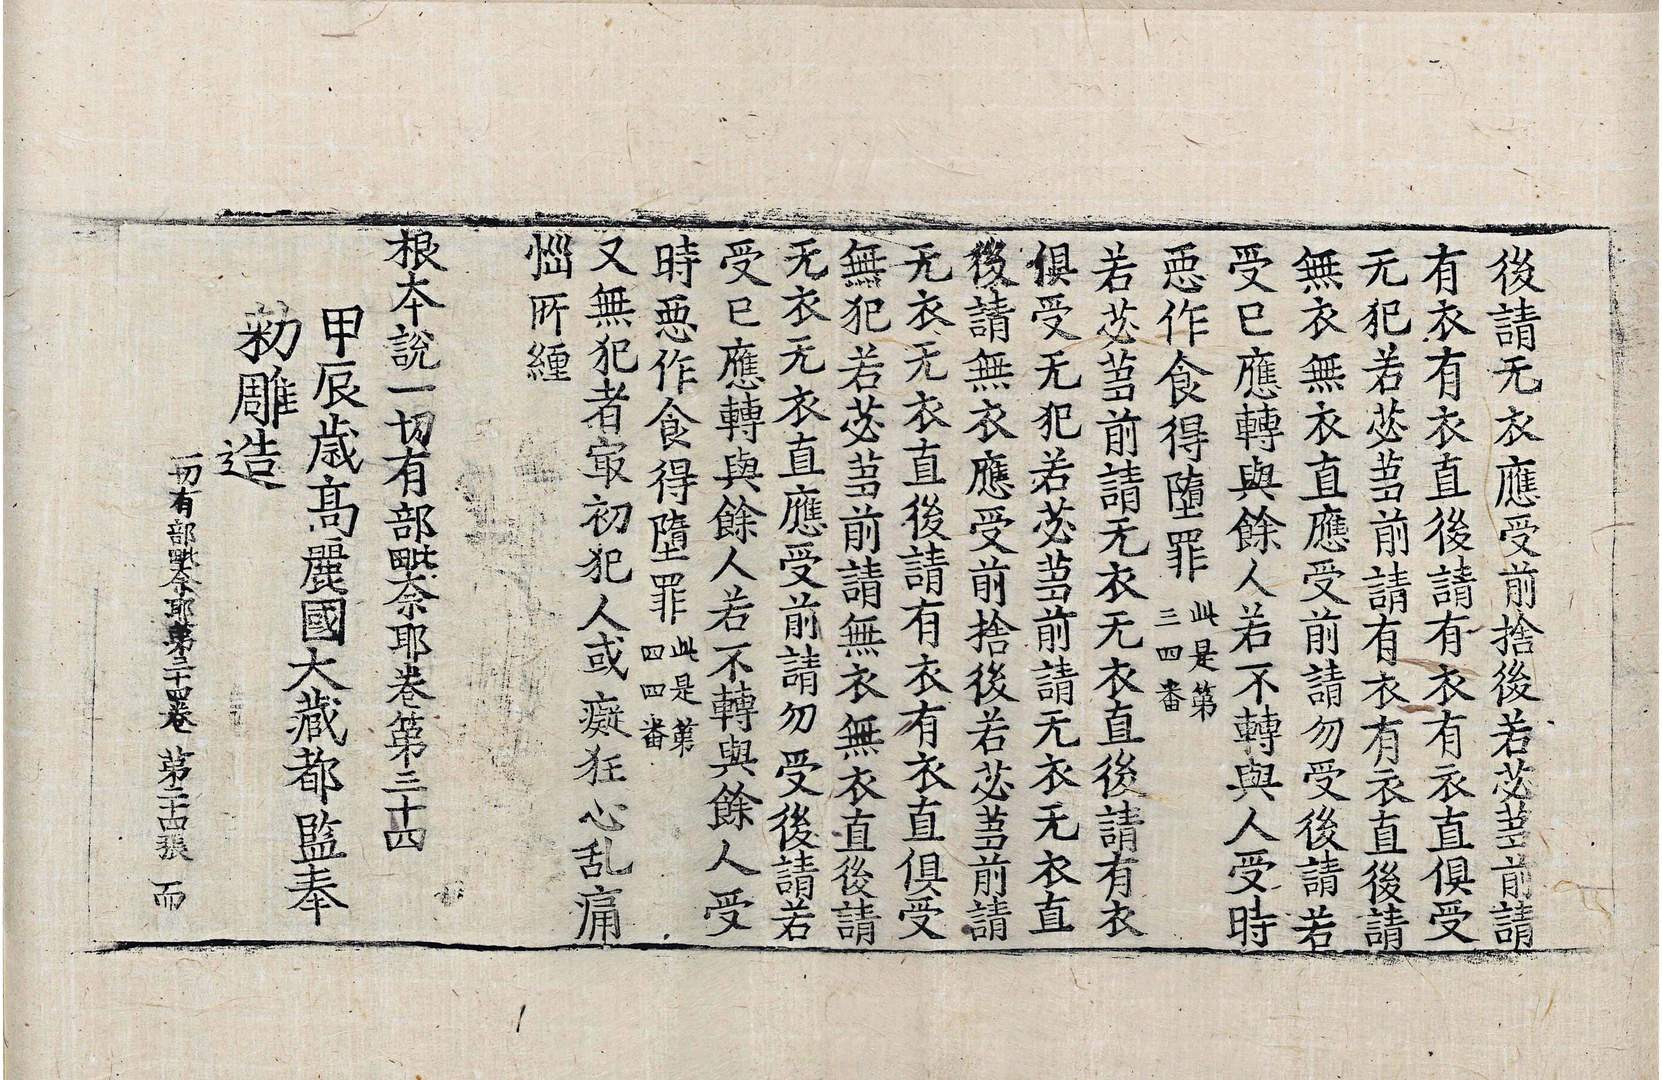 後請无衣應受前捨後若苾芻前請
有衣有衣直後請有衣有衣直俱受
无犯若苾芻前請有衣有衣直後請
無衣無衣直應受前請勿受後請若
受已應轉與餘人若不轉與人受時
惡作食得墮罪此是第三四番
若苾芻前請无衣无衣直後請有衣
俱受无犯若苾芻前請无衣无衣直
後請無衣應受前捨後若苾芻前請
无衣无衣直後請有衣有衣直俱受
無犯若苾芻前請無衣無衣直後請
无衣无衣直應受前請勿受後請若
受已應轉與餘人若不轉與餘人受
時惡作食得墮罪此是第四四番
又無犯者冣初犯人或癡狂心乱痛
惱所纏
根本說一切有部毗奈耶卷第三十四
甲辰歲高麗國大藏都監奉
勑雕造
一切有部毗奈耶第三十四卷 第二十四張 而